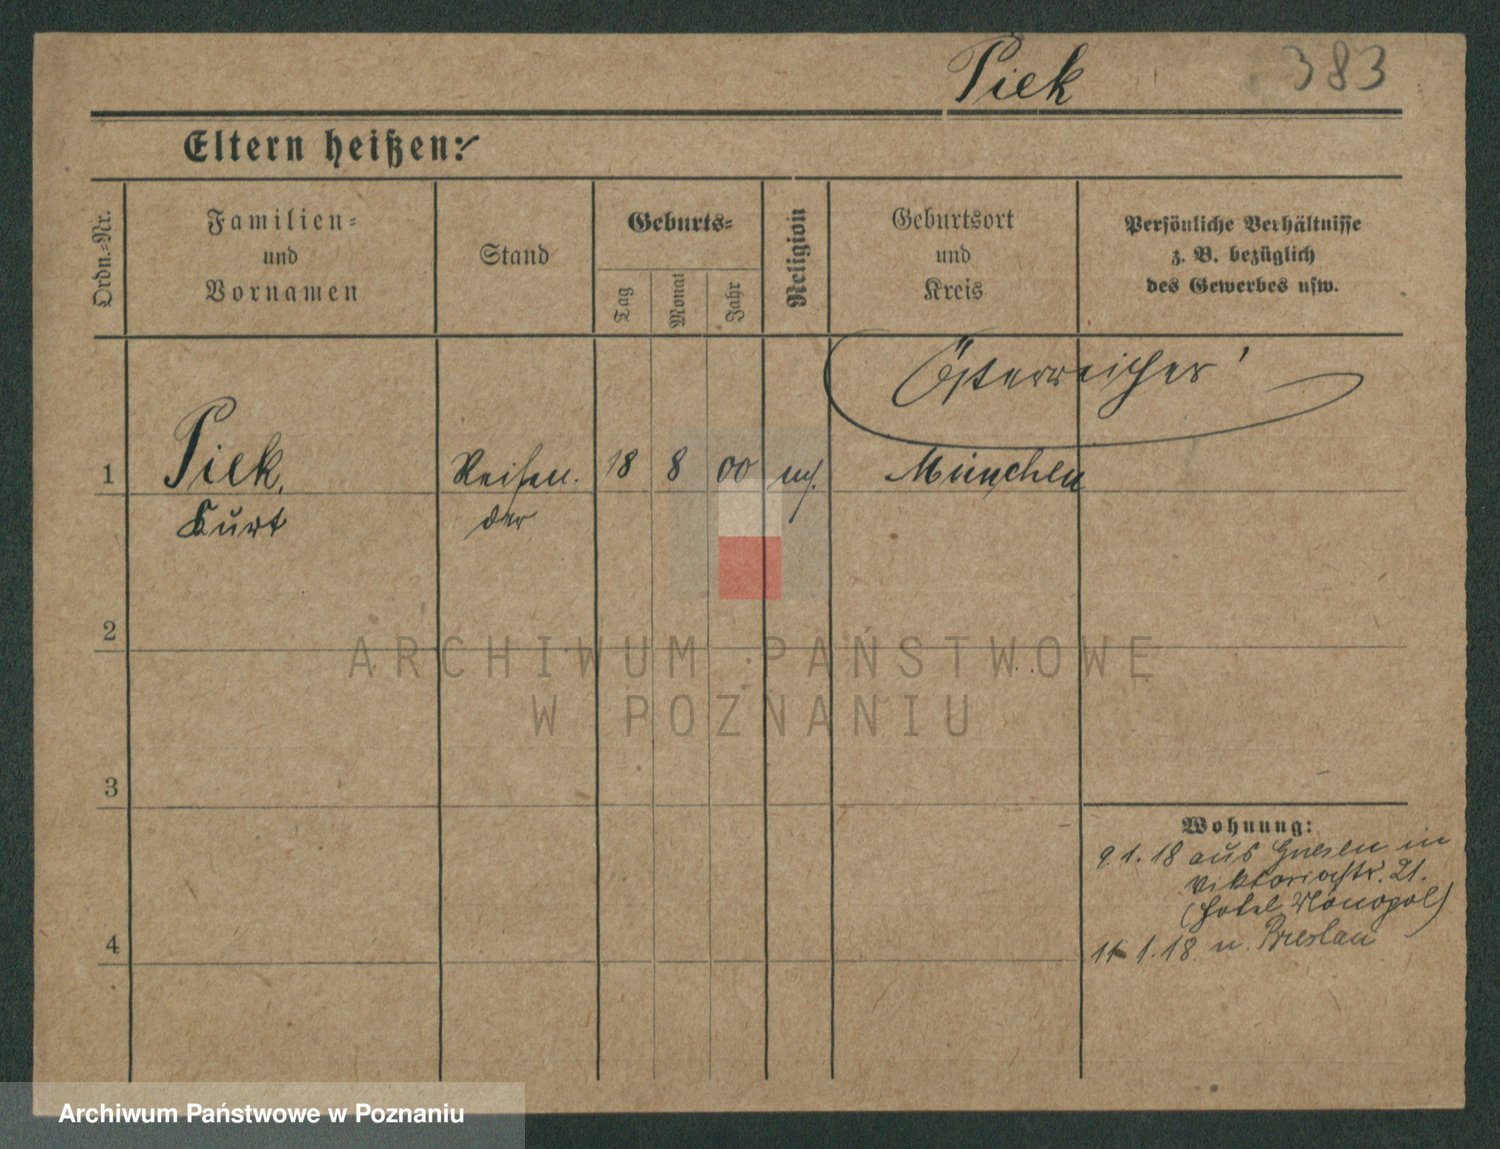 Piek 383
Eltern heißen:
Ordn.-Nr.
Familien-
und
Vornamen
Stand
Geburts-
Tag
Monat
Jahr
Religion
Geburtsort
und
Kreis
Persönliche Verhältnisse
z. B. bezüglich
des Gewerbes usw.
Österreicher
1 Piek, Reisen- 18 8 00 München
Kurt der
2
ARCHIWUM PAŃSTWOWE
W POZNANIU
3
Wohnung:
9.1.18 aus Gnesen in
Viktoriastr. 21.
(Hotel Monopol)
4
11.1.18 n. Breslau
Archiwum Państwowe w Poznaniu